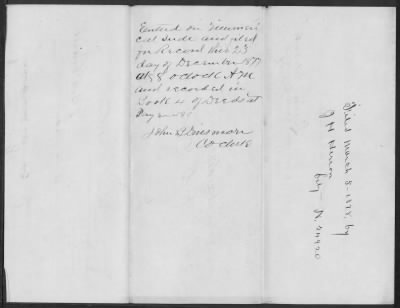 Entered on Numeri
cal Index and filed
for Record this 23
day of December 1877
at 8 o clock A M
and recorded in
Book of Deeds at
Page
John Dinsmore
Co clerk
Filed March 8-1878, by
J H
Atty